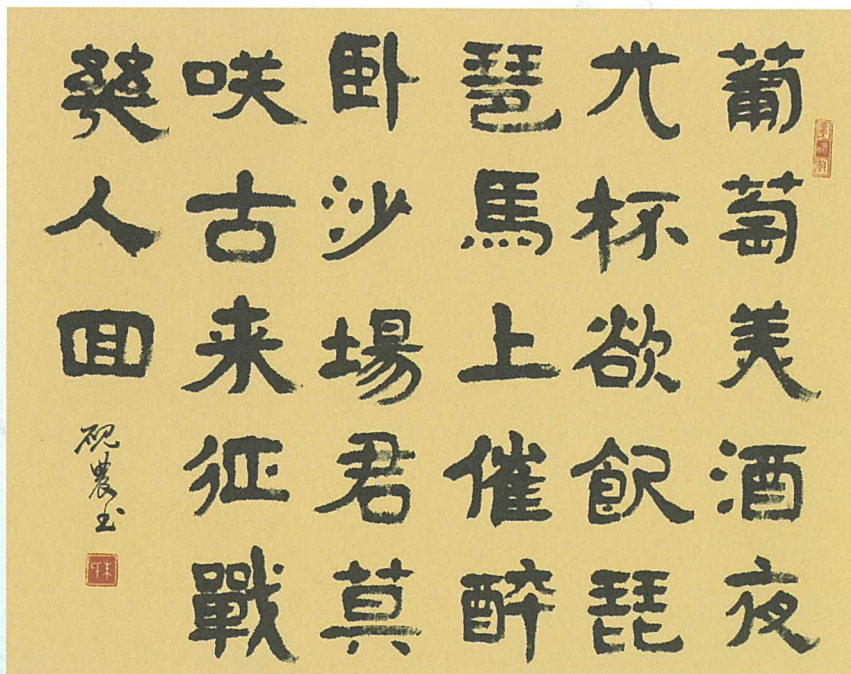 葡萄美酒夜
光杯欲飲琵
琶馬上催醉
卧沙場君莫
咲古来征戰
幾人回
硯農玉